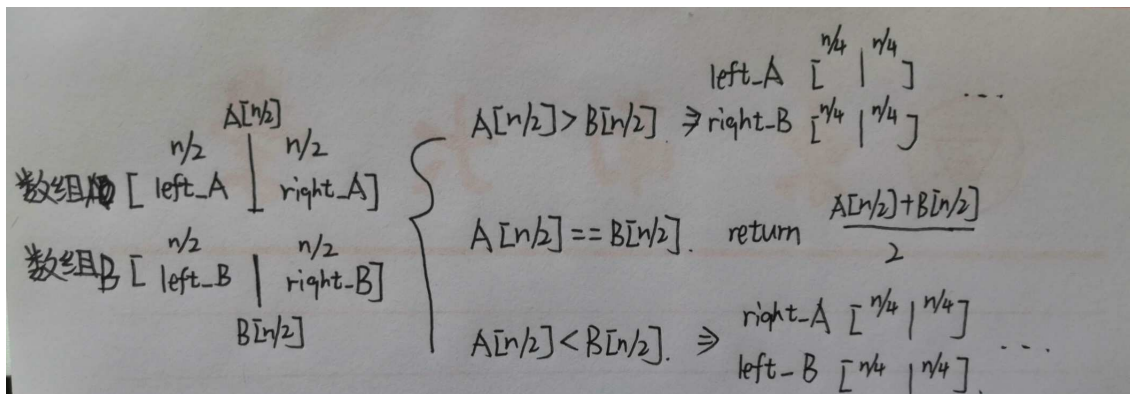 A[n/2]
n/2 n/2
数组A [ left_A | right_A]
n/2 n/2
数组B [ left_B | right_B]
B[n/2]
n/4 n/4
left_A [ | ]
A[n/2]>B[n/2] ⇒ right_B [n/4 | n/4] ...
A[n/2]==B[n/2]. return A[n/2]+B[n/2]
2
right_A [n/4 | n/4]
A[n/2]<B[n/2]. ⇒ ...
left_B [n/4 | n/4].